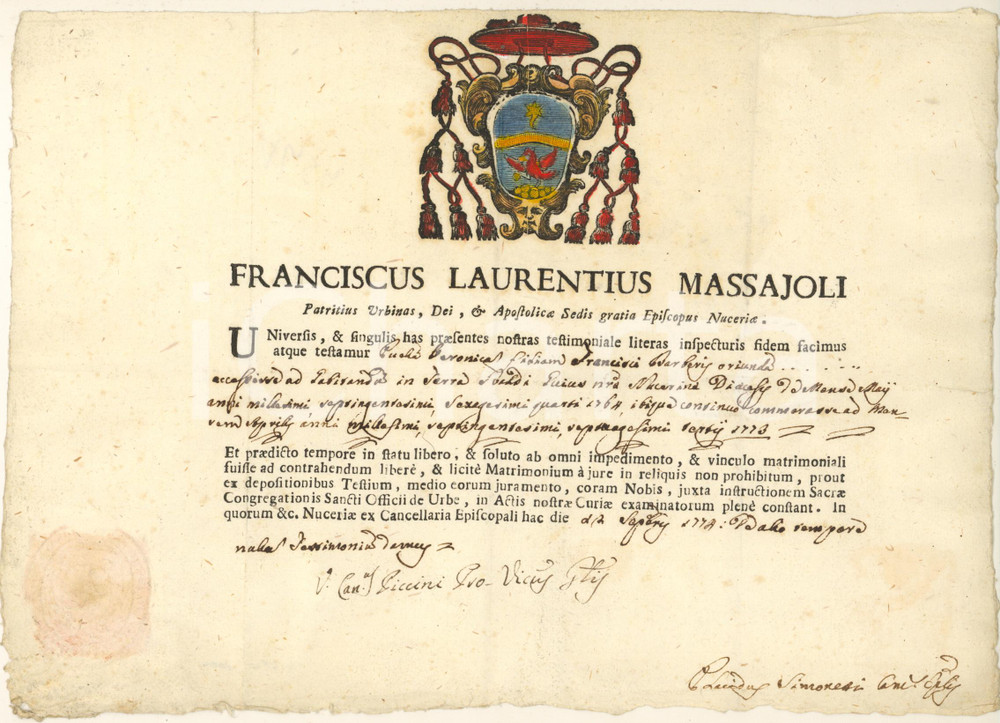 FRANCISCUS LAURENTIUS MASSAJOLI
Patritius Vrbinas, Dei, & Apostolicæ Sedis gratia Episcopus Nuceriæ.
UNiversis, & singulis has præsentes nostras testimoniale literas inspecturis fidem facimus
atque testamur Francisci oriunda
in Terra nrâ Nucerina Diœcesis Mense Maij
anni millesimi, septingentesimi, sexagesimi quarti 1764, ibique continuo commorasse ad Men-
sem Aprilis anni millesimi, septingentesimi, septuagesimi tertij 1773
Et prædicto tempore in statu libero, & soluto ab omni impedimento, & vinculo matrimoniali
fuisse ad contrahendum liberè, & licitè Matrimonium à jure in reliquis non prohibitum, prout
ex depositionibus Testium, medio eorum juramento, coram Nobis, juxta instructionem Sacræ
Congregationis Sancti Officii de Urbe, in Actis nostræ Curiæ examinatorum plenè constant. In
quorum &c. Nuceriæ ex Cancellaria Episcopali hac die 1774
Piccini Pro-Vicus Glis
Simonetti Canc. Eplis